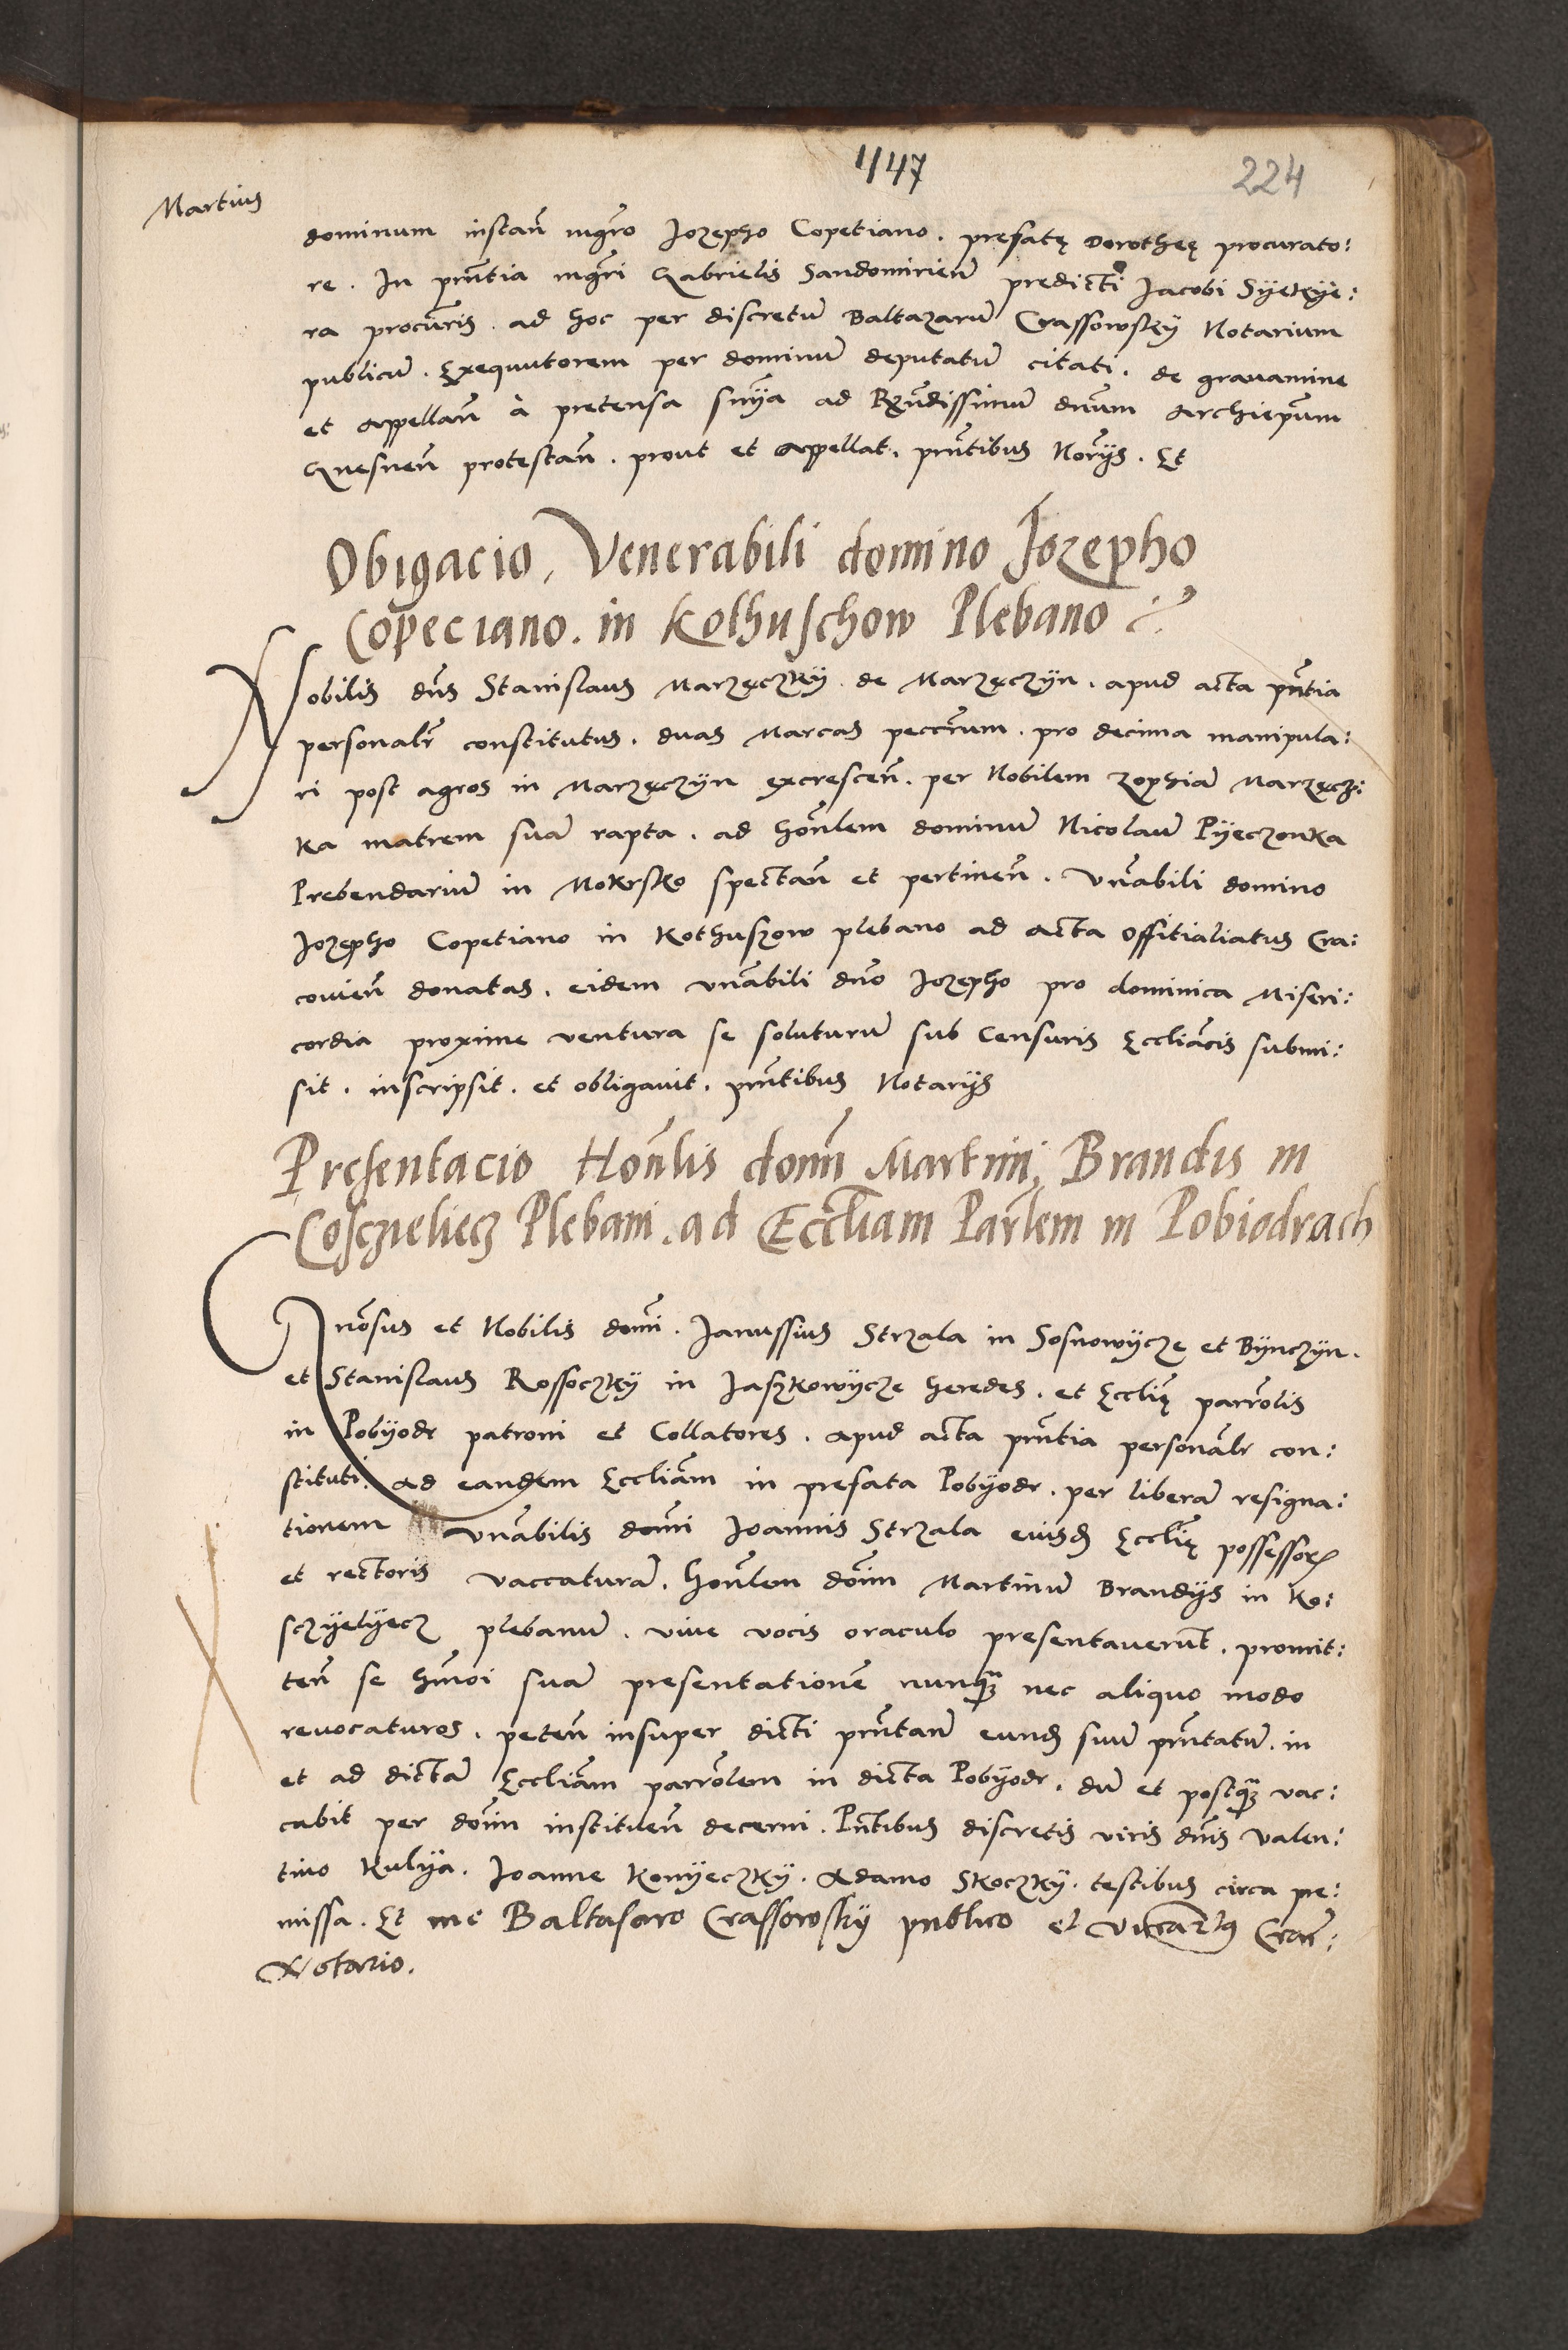 1147
224
Martius
dominum instañ mgro Jozepho Copetiano. prefatę Dorotheę procurato:
re. In pñtia mgri Gabrielis Sandomirieñ predicti Jacobi Syekye:
ra procuris. ad hoc per discretũ Baltazarũ Crassowsky Notarium
publicũ. Exequutorem per dominũ deputatũ citati. de gravamine
et appellañ à pretensa sñya ad Rzndissimũ dnum Archiepum
Gnesneñ protestañ. prout et appellat. pñtibus Norijs. Et
Obigacio, Venerabili domino Jozepho
Copeciano. in Kolhuschow Plebano
Nobilis dñs Stanislaus Marzęczky de Marzęczyn. apud acta pñtia
personalr constitutus. duas Marcas peccrum. pro decima manipula:
ri post agros in Marzęczyn excresceñ. per Nobilem Zophiã Marzęcz:
ka matrem suã rapta. ad honlem dominũ Nicolaũ Pyeczonka
Prebendariũ in Mokrsko spectañ et pertineñ. Vnabili domino
Jozepho Copetiano in Kothuszow plebano ad acta Offitialiatus Cra:
covieñ donatas. eidem vnabili dno Jozepho pro dominica Miseri:
cordia proxime ventura se soluturũ sub Censuris Eccliacis submi:
sit. inscripsit. et obligavit. pñtibus Notarijs
Presentacio Honlis domi Martini Brandis in
Cosczneliecz Plebani. ad Eccliam Parlem in Pobiodrach
Gnosus et Nobilis domi. Janussius Strzala in Sosnowycze et Bynczyn.
et Stanislaus Rossoczky in Jaszkowycze heredes. et Ecclię parrolis
in Pobyodr patroni et Collatores. apud acta pñtia personalr con:
stituti. ad eandem Eccliam in prefata Pobyodr. per liberã resigna:
tionem vnabilis domi Joannis Strzala eiusd Ecclię possessor
et rectoris vaccaturã. honlem domi Martinũ Brandys in Ko:
sczyelyecz plebanũ. vive vocis oraculo presentaverũt. promit:
teñ se hmoi suã presentationẽ nunq nec aliquo modo
revocaturos. peteñ insuper dicti pñtañ eund suũ pñtatũ. in
et ad dictã Eccliam parrolem in dicta Pobyodr. dũ et postq vac:
cabit per domi institueñ decerni. Pñtibus discretis viris dnis Valen:
tino Kulya. Joanne Konyeczky. Adamo Skoczky. testibus circa pre:
missa. Et me Baltasaro Crassowsky publico et Crac:
Notario.